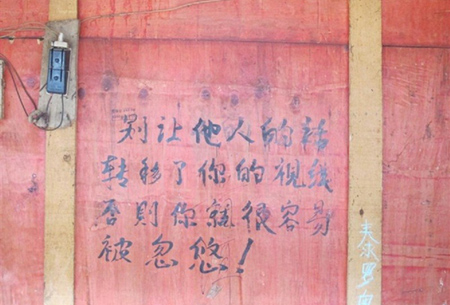 别让他人的话
转移了你的视线
否則你就很容易
被忽悠！